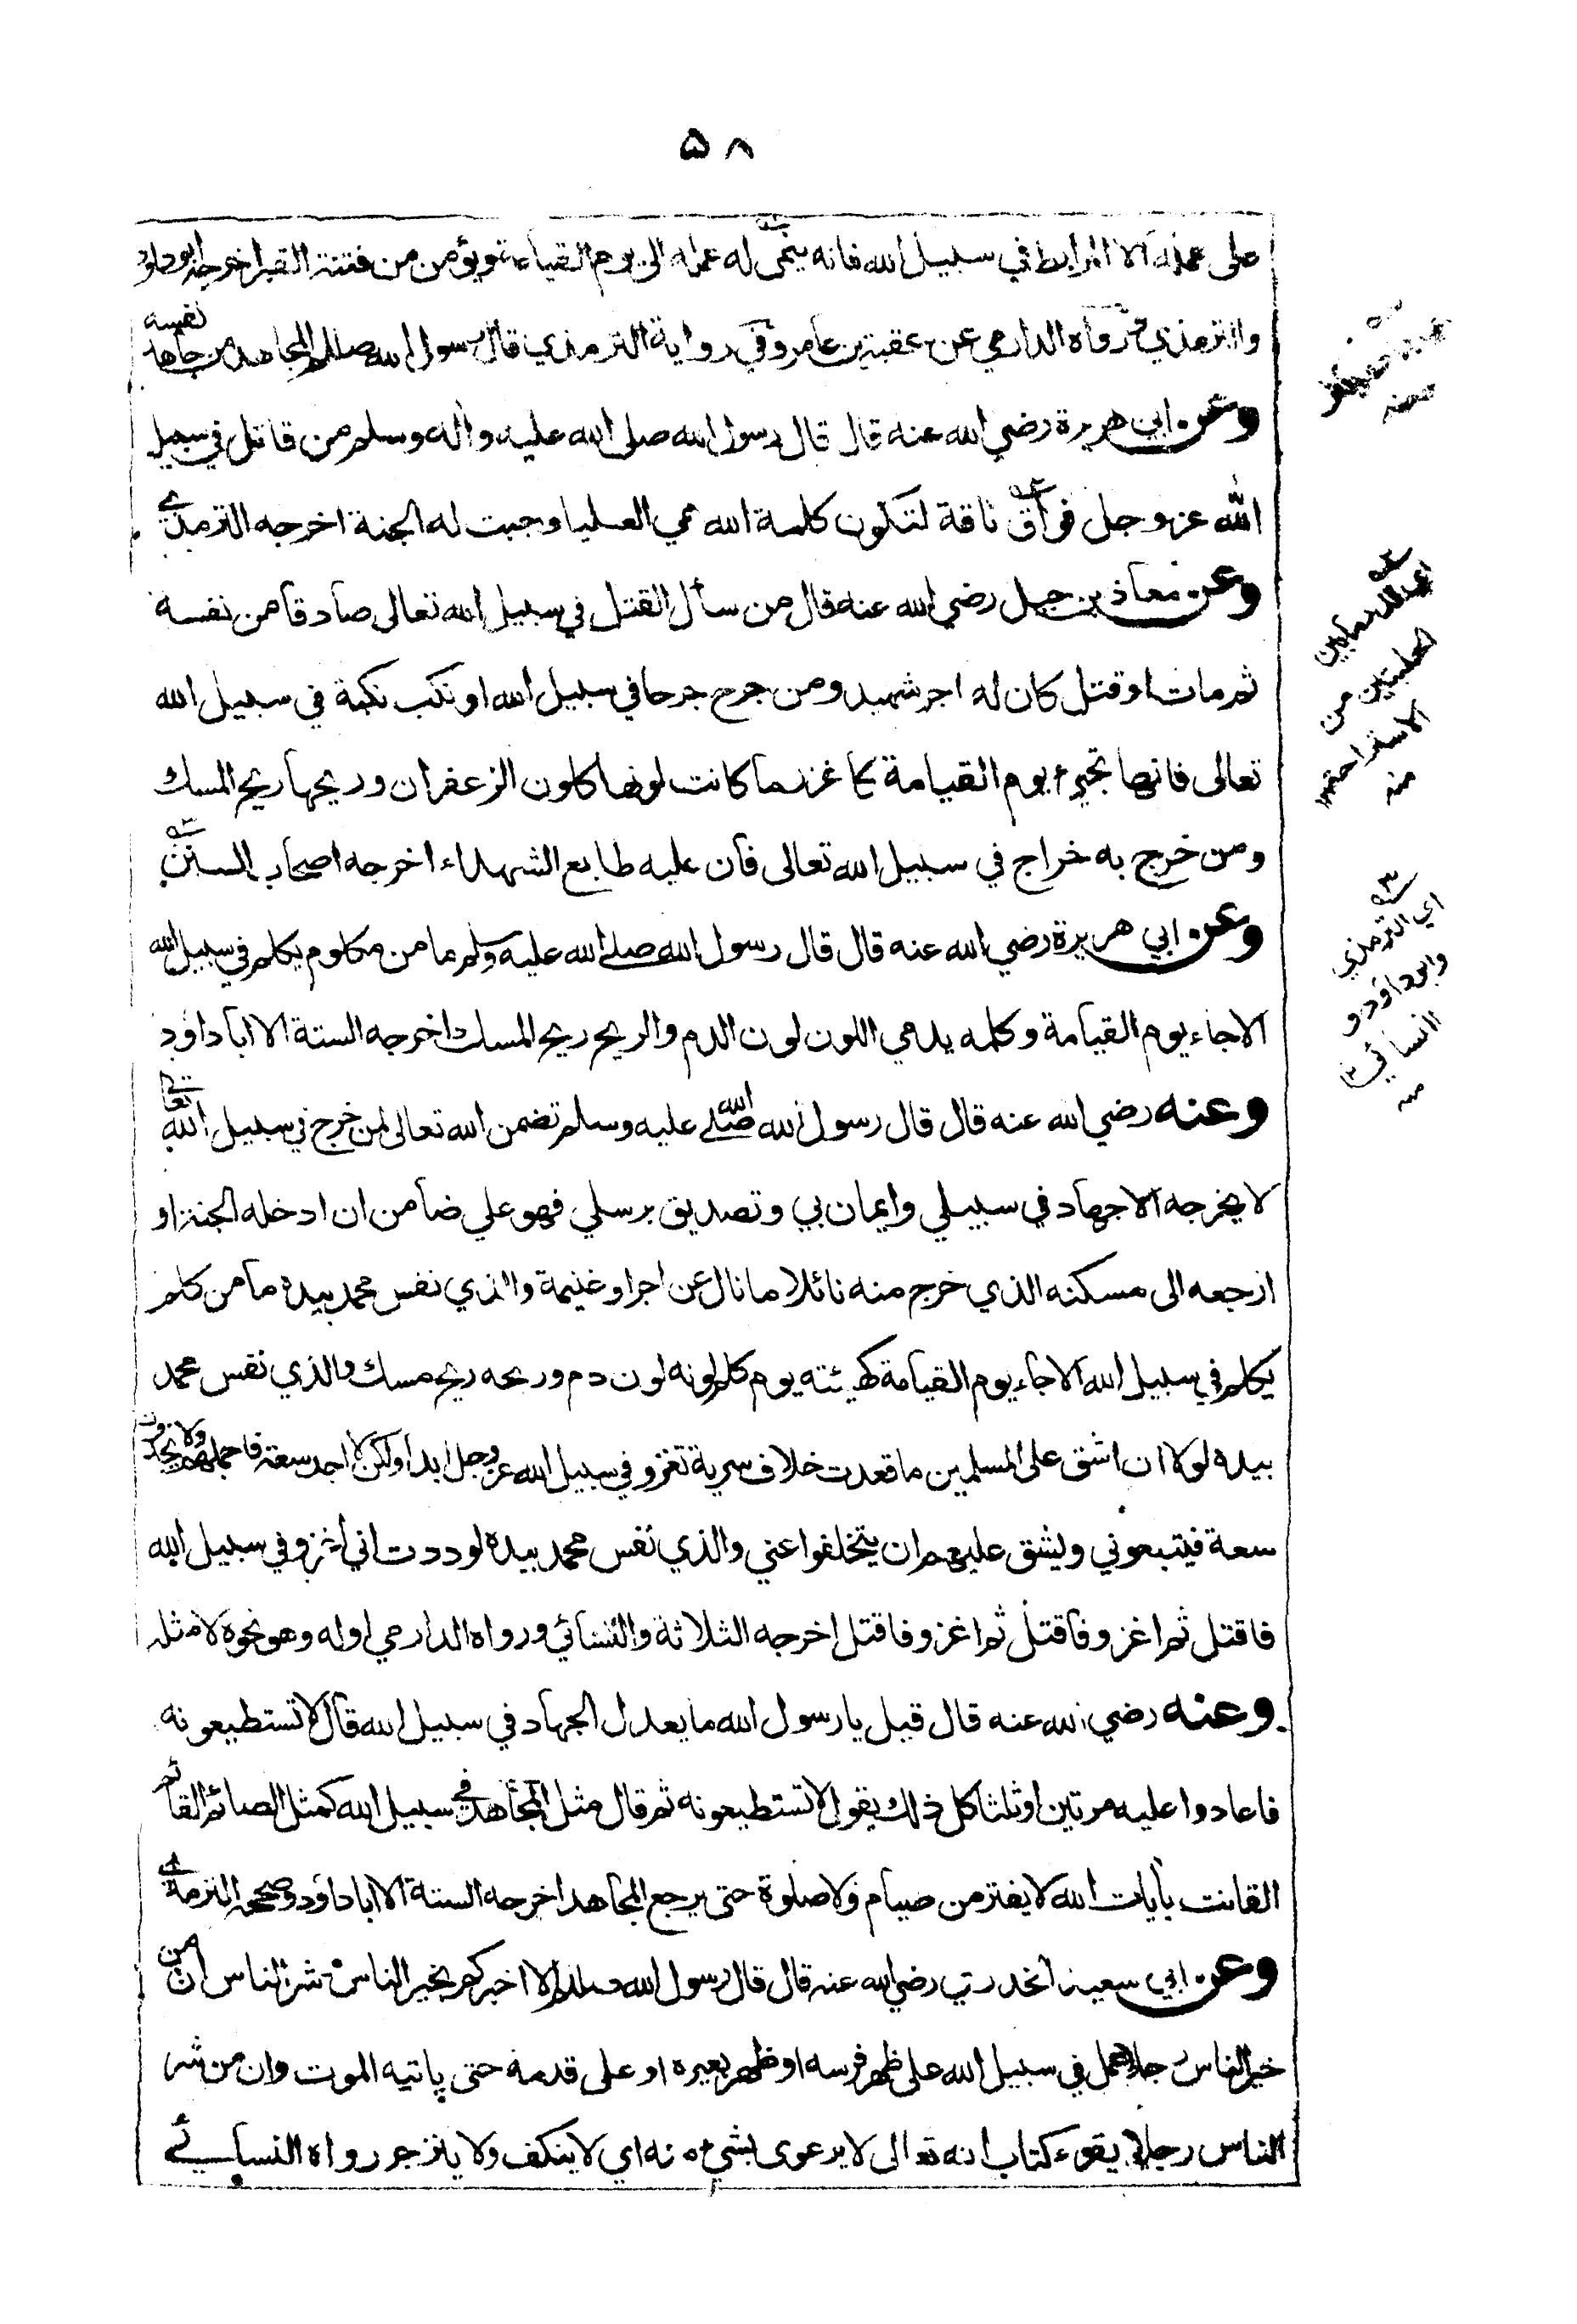 ۵۸
على عمله الا المرابط في سبيل الله فانه ينمى له عمله الى يوم القيامة ويؤمن من فتنة القبر اخرجه ابو داود
والترمذي ورواه الدارمي عن عقبة بن عامر وفي رواية الترمذي قال رسول الله صللم المجاهد من جاهد نفسه
وعن ابي هريرة رضي الله عنه قال قال رسول الله صلى الله عليه واله وسلم من قاتل في سبيل
الله عز وجل فواق ناقة لتكون كلمة الله هي العليا وجبت له الجنة اخرجه الترمذي
وعن معاذ بن جبل رضي الله عنه قال من سأل القتل في سبيل الله تعالى صادقا من نفسه
ثم مات او قتل كان له اجر شهيد ومن جرح جرحا في سبيل الله او نكب نكبة في سبيل الله
تعالى فانها تجيء يوم القيامة كاغزر ما كانت لونها كلون الزعفران وريحها ريح المسك
ومن خرج به خراج في سبيل الله تعالى فان عليه طابع الشهداء اخرجه اصحاب السنن
وعن ابي هريرة رضي الله عنه قال قال رسول الله صلے الله عليه وسلم ما من مكلوم يكلم في سبيل الله
الا جاء يوم القيامة وكلمه يدمي اللون لون الدم والريح ريح المسك اخرجه الستة الا ابا داود
وعنه رضي الله عنه قال قال رسول الله صلے الله عليه وسلم تضمن الله تعالى لمن خرج في سبيل الله تعالى
لا يخرجه الا جهاد في سبيلي وايمان بي وتصديق برسلي فهو علي ضامن ان ادخله الجنة او
ارجعه الى مسكنه الذي خرج منه نائلا ما نال عن اجر او غنيمة والذي نفس محمد بيده ما من كلم
يكلم في سبيل الله الا جاء يوم القيامة كهيئته يوم كلم لونه لون دم وريحه ريح مسك والذي نفس محمد
بيده لولا ان اشق على المسلمين ما قعدت خلاف سرية تغزو في سبيل الله عز وجل ابدا ولكن لا اجد سعة فاحملهم ولا يجدون
سعة فيتبعوني ويشق عليهم ان يتخلفوا عني والذي نفس محمد بيده لوددت اني اغزو في سبيل الله
فاقتل ثم اغزو فاقتل ثم اغزو فاقتل اخرجه الثلاثة والنسائي ورواه الدارمي اوله وهو نحوه لا مثله
وعنه رضي الله عنه قال قيل يا رسول الله ما يعدل الجهاد في سبيل الله قال لا تستطيعونه
فاعادوا عليه مرتين او ثلثا كل ذلك يقول لا تستطيعونه ثم قال مثل المجاهد في سبيل الله كمثل الصائم القائم
القانت بأيات الله لا يفتر من صيام ولا صلوة حتى يرجع المجاهد اخرجه الستة الا ابا داود وصححه الترمذي
وعن ابي سعيد الخدري رضي الله عنه قال قال رسول الله صللم الا اخبركم بخير الناس وشر الناس ان من
خير الناس رجلا عمل في سبيل الله على ظهر فرسه او ظهر بعيره او على قدمه حتى ياتيه الموت وان من شر
الناس رجلا يقرء كتاب الله تعالى لا يرعوى بشيء منه اي لا ينكف ولا ينزجر رواه النسائي
اي الترمذي
وابو داود و
النسائي ١٢
منه